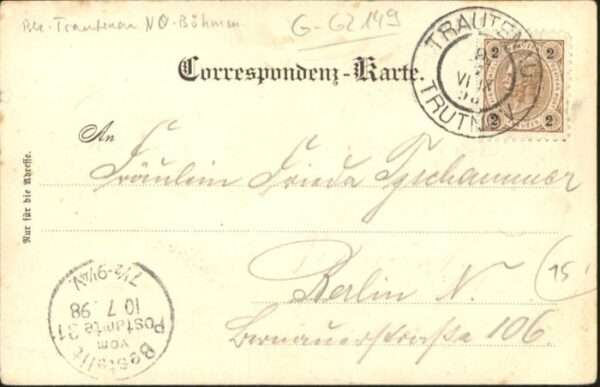 Bez. Trautenau NO-Böhmen
G-G2149
TRAUTENAU
TRUTNOV
2 2
2 2
Correspondenz-Karte.
An
Fräulein Frieda Tzschammer
Berlin N.
Bernauerstraße 106.
15
Nur für die Adresse.
Bestellt
vom
Postamte 31
10.7.98
7½-9¼V.